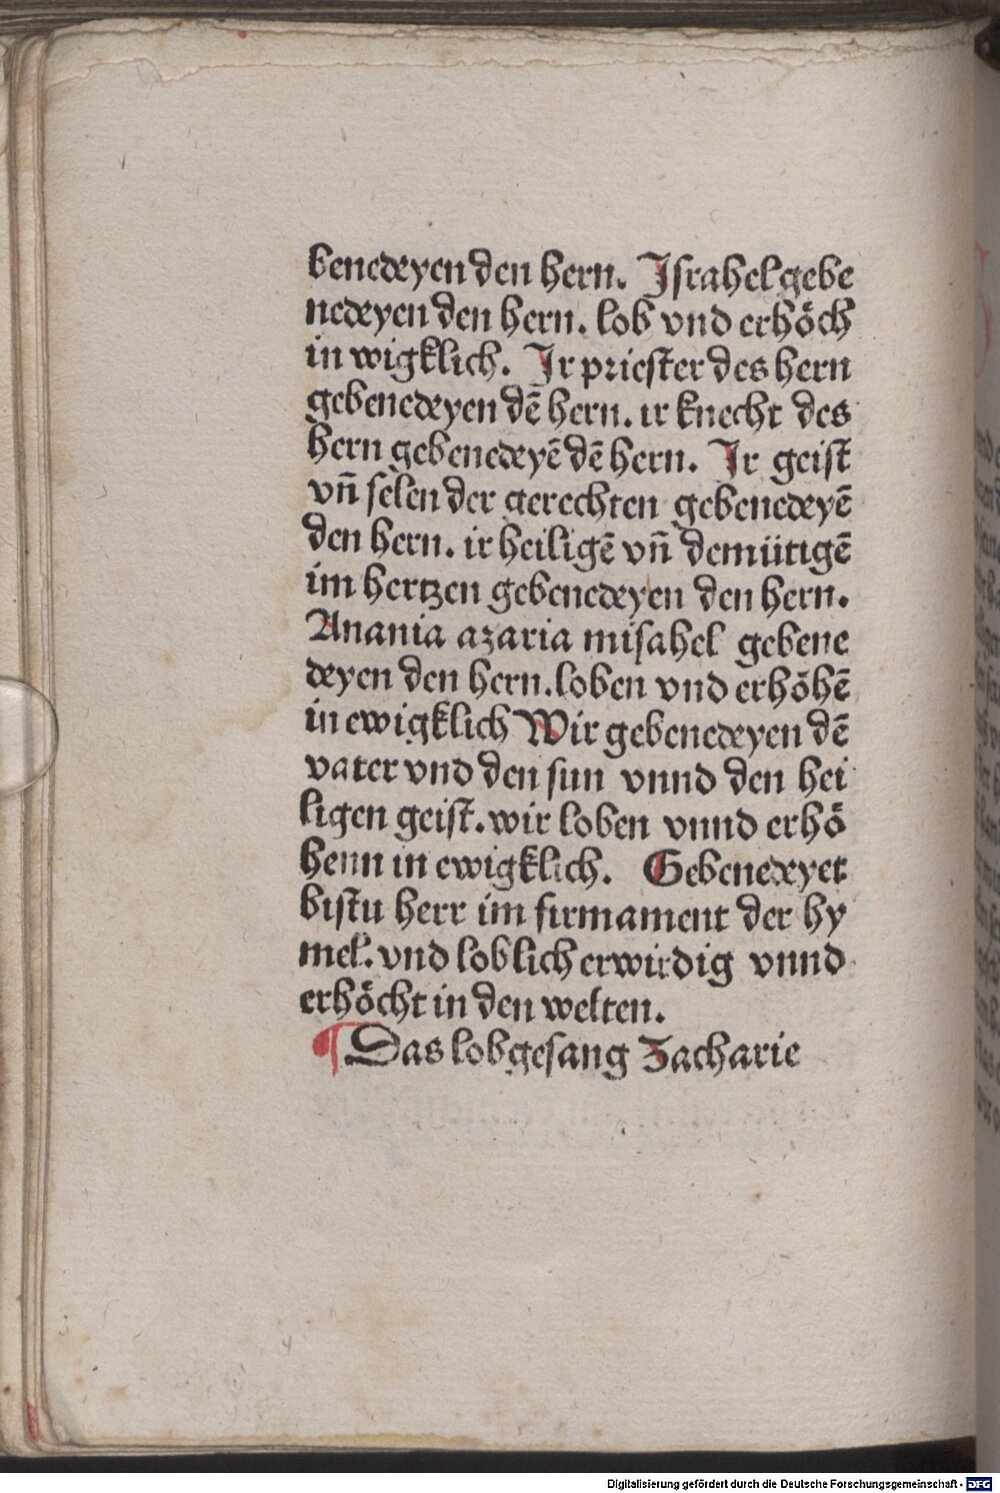 benedeyen den hern. Israhel gebe
nedeyen den hern. lob vnd erhöch
in wigklich. Ir priester des hern
gebenedeyen dē hern. ir knecht des
hern gebenedeyē dē hern. Ir geist
vn̄ selen der gerechten gebenedeyē
den hern. ir heiligē vn̄ demütigē
im hertzen gebenedeyen den hern.
Anania azaria misahel gebene
deyen den hern. loben vnd erhöhē
in ewigklich Wir gebenedeyen dē
vater vnd den sun vnnd den hei
ligen geist. wir loben vnnd erhö
henn in ewigklich. Gebenedeyet
bistu herr im firmament der hy
mel. vnd loblich erwirdig vnnd
erhöcht in den welten.
¶ Das lobgesang Zacharie
Digitalisierung gefördert durch die Deutsche Forschungsgemeinschaft - DFG